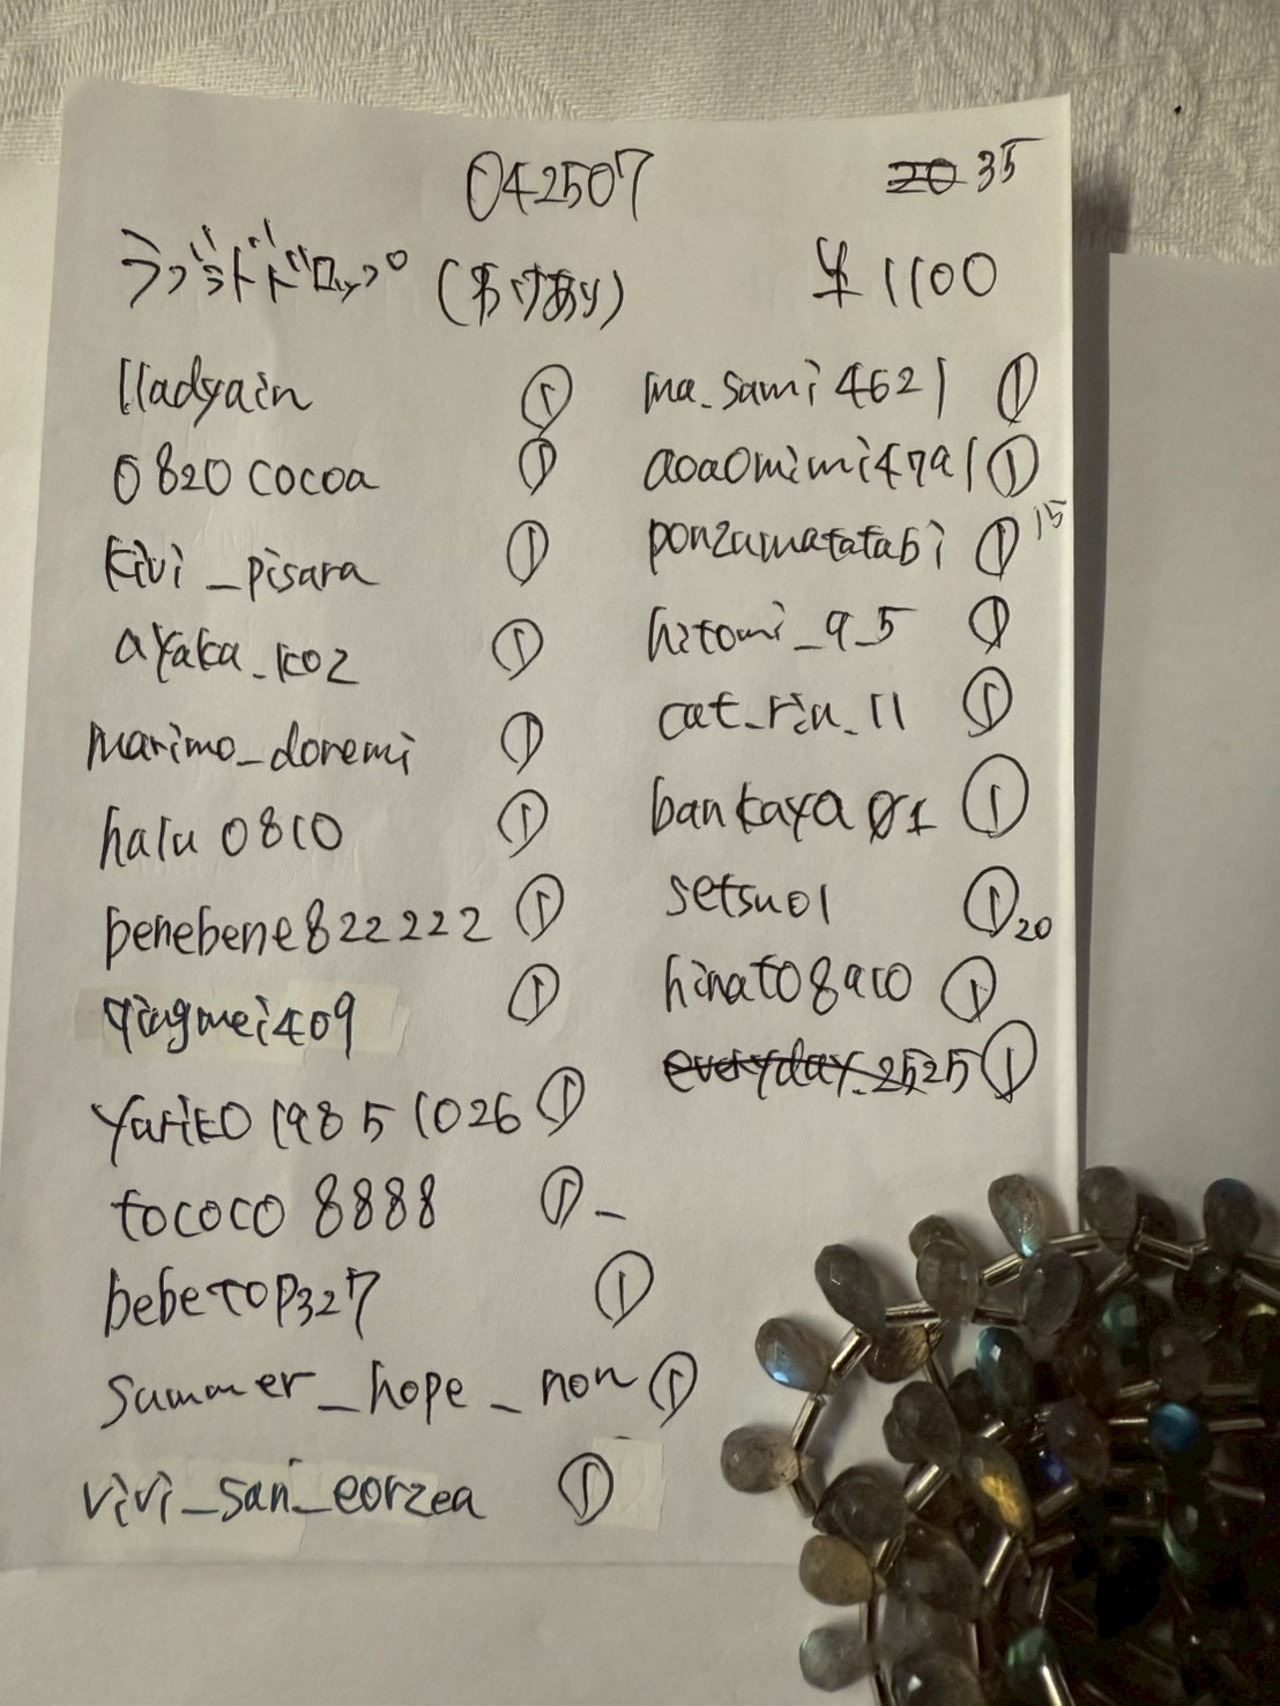 042507
20 35
ラブラドドロップ (わけあり) ¥1100
lladyain ①
0820cocoa ①
kivi_pisara ①
ayaka_ko2 ①
marimo_doremi ①
halu0810 ①
benebene822222 ①
qingmei409 ①
yariko19851026 ①
tococo8888 ① _
bebetop327 ①
summer_hope_non ①
vivi_san_eorzea ①
ma_sami4621 ①
aoaomimi4791 ①
ponzumatatabi ① 15
hitomi_9_5 ①
cat_rin_11 ①
bankaya01 ①
setsu01 ① 20
hinato8910 ①
everyday_2525 ①